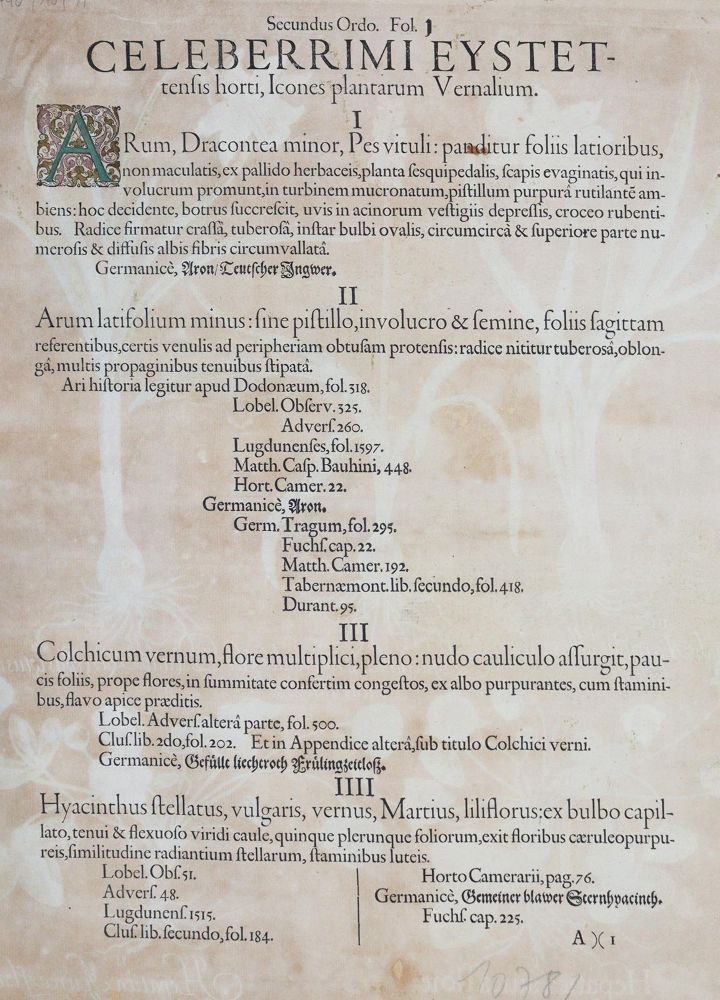 Secundus Ordo. Fol. 1
CELEBERRIMI EYSTET-
tensis horti, Icones plantarum Vernalium.
I
ARum, Dracontea minor, Pes vituli: panditur foliis latioribus,
non maculatis, ex pallido herbaceis, planta sesquipedalis, scapis evaginatis, qui in-
volucrum promunt, in turbinem mucronatum, pistillum purpurâ rutilantẽ am-
biens: hoc decidente, botrus succrescit, uvis in acinorum vestigiis depressis, croceo rubenti-
bus. Radice firmatur crassâ, tuberosâ, instar bulbi ovalis, circumcircà & superiore parte nu-
merosis & diffusis albis fibris circumvallatâ.
Germanicè, Aron/Teutscher Ingwer.
II
Arum latifolium minus: sine pistillo, involucro & semine, foliis sagittam
referentibus, certis venulis ad peripheriam obtusam protensis: radice nititur tuberosâ, oblon-
gâ, multis propaginibus tenuibus stipatâ.
Ari historia legitur apud Dodonæum, fol. 318.
Lobel. Observ. 325.
Advers. 260.
Lugdunenses, fol. 1597.
Matth. Casp. Bauhini, 448.
Hort. Camer. 22.
Germanicè, Aron.
Germ. Tragum, fol. 295.
Fuchs. cap. 22.
Matth. Camer. 192.
Tabernæmont. lib. secundo, fol. 418.
Durant. 95.
III
Colchicum vernum, flore multiplici, pleno: nudo cauliculo assurgit, pau-
cis foliis, prope flores, in summitate confertim congestos, ex albo purpurantes, cum stamini-
bus, flavo apice præditis.
Lobel. Advers. alterâ parte, fol. 500.
Clus. lib. 2do, fol. 202. Et in Appendice alterâ, sub titulo Colchici verni.
Germanicè, Gefüllt liechtroth Frülingzeitloß.
IIII
Hyacinthus stellatus, vulgaris, vernus, Martius, liliflorus: ex bulbo capil-
lato, tenui & flexuoso viridi caule, quinque plerunque foliorum, exit floribus cæruleopurpu-
reis, similitudine radiantium stellarum, staminibus luteis.
Lobel. Obs. 51.
Advers. 48.
Lugdunens. 1515.
Clus. lib. secundo, fol. 184.
Horto Camerarii, pag. 76.
Germanicè, Gemeiner blawer Sternhyacinth.
Fuchs. cap. 225.
A )( 1